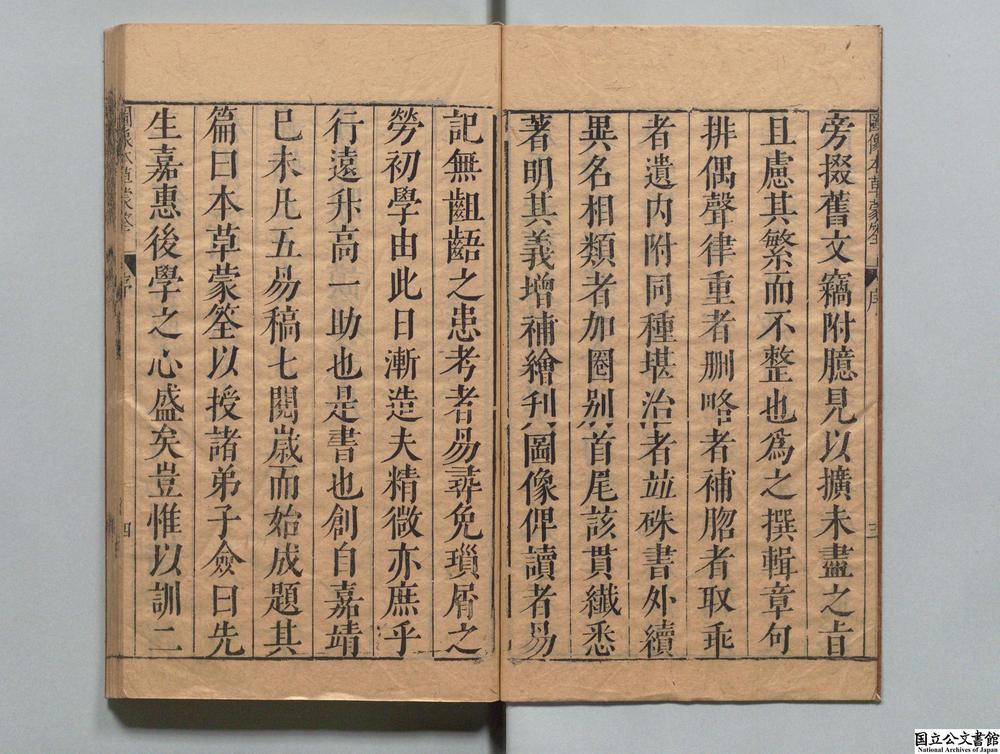 圖像本草蒙筌 序 三
旁掇舊文竊附臆見以擴未盡之旨
且慮其繁而不整也爲之撰輯章句
排偶聲律重者刪略者補胳者取乖
者遺内附同種堪治者並硃書外續
異名相類者加圈别首尾該貫纖悉
著明其義增補繪刋圖像俾讀者易
記無齟齬之患考者易尋免瑣屑之
勞初學由此日漸造夫精微亦庶乎
行遠升高一助也是書也創自嘉靖
已未凡五易稿七閱歲而始成題其
篇曰本草蒙筌以授諸弟子僉曰先
生嘉惠後學之心盛矣豈惟以訓二
圖像本草蒙筌 序 四
国立公文書館
National Archives of Japan